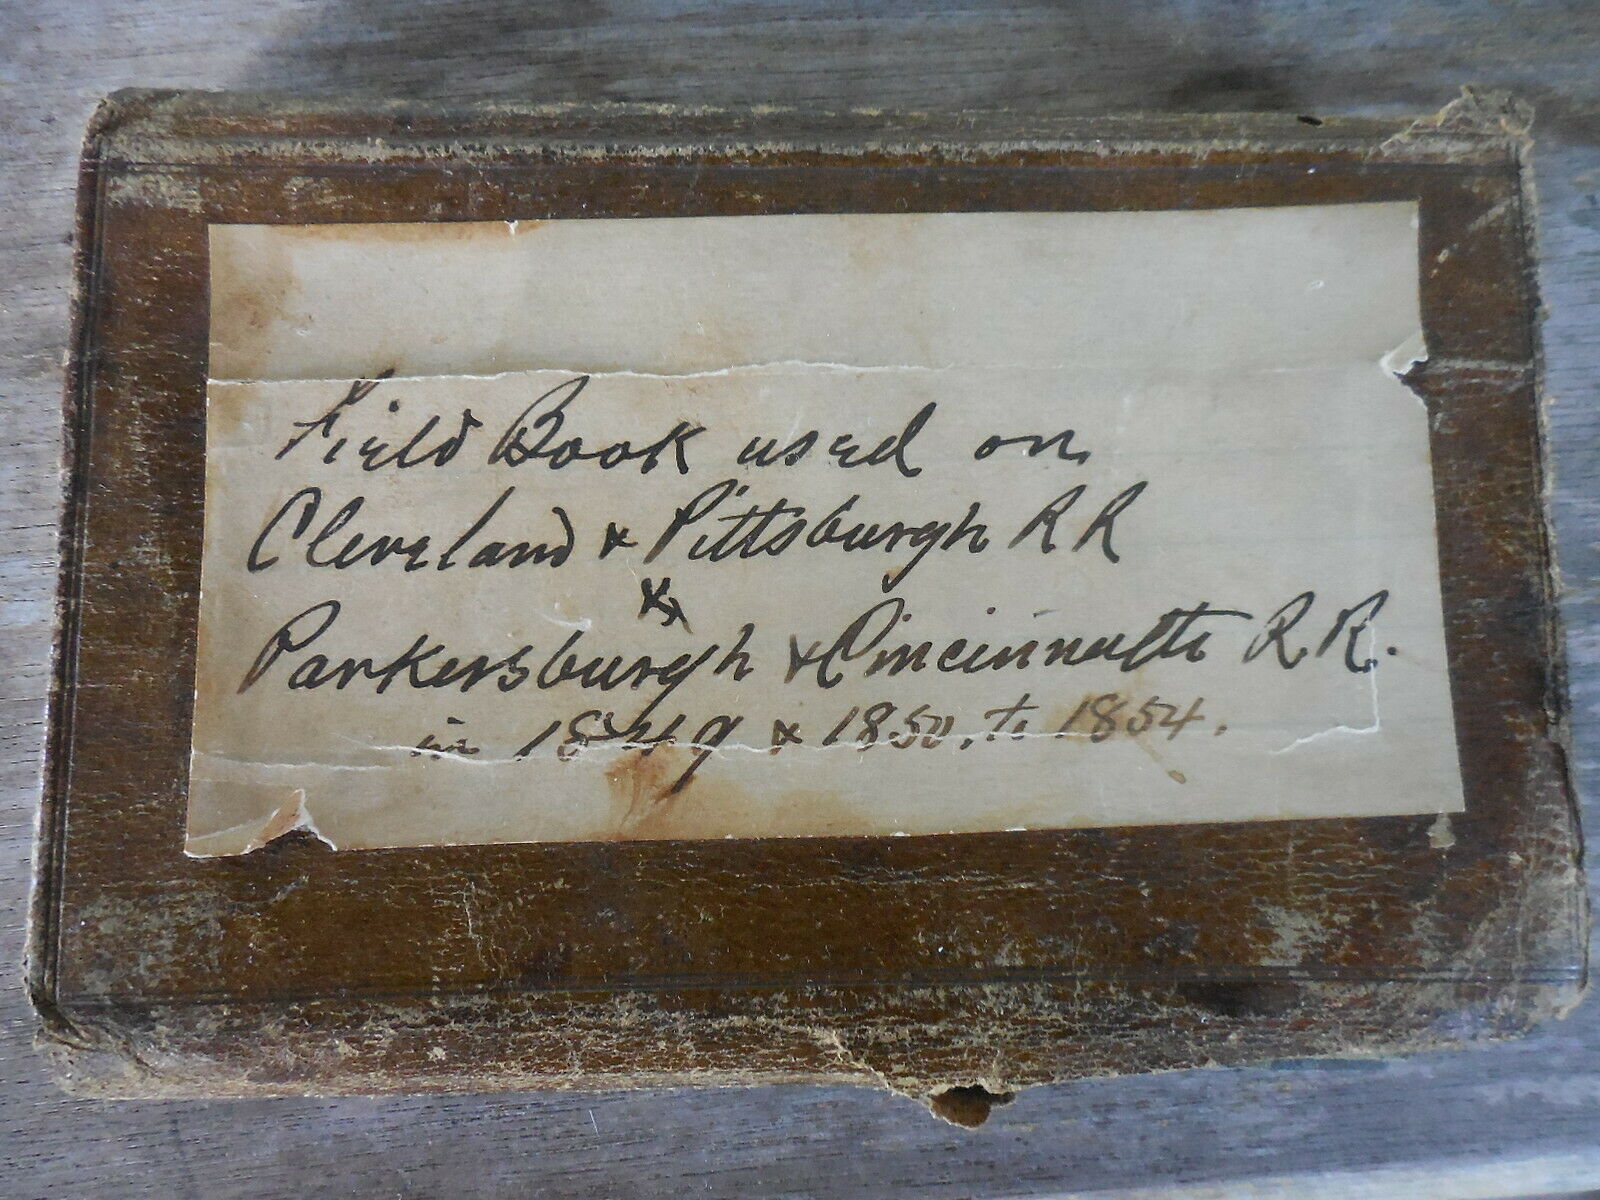 Field Book used on
Cleveland & Pittsburgh RR
&
Parkersburgh & Cincinnatti R.R.
in 1849 & 1850, to 1854.